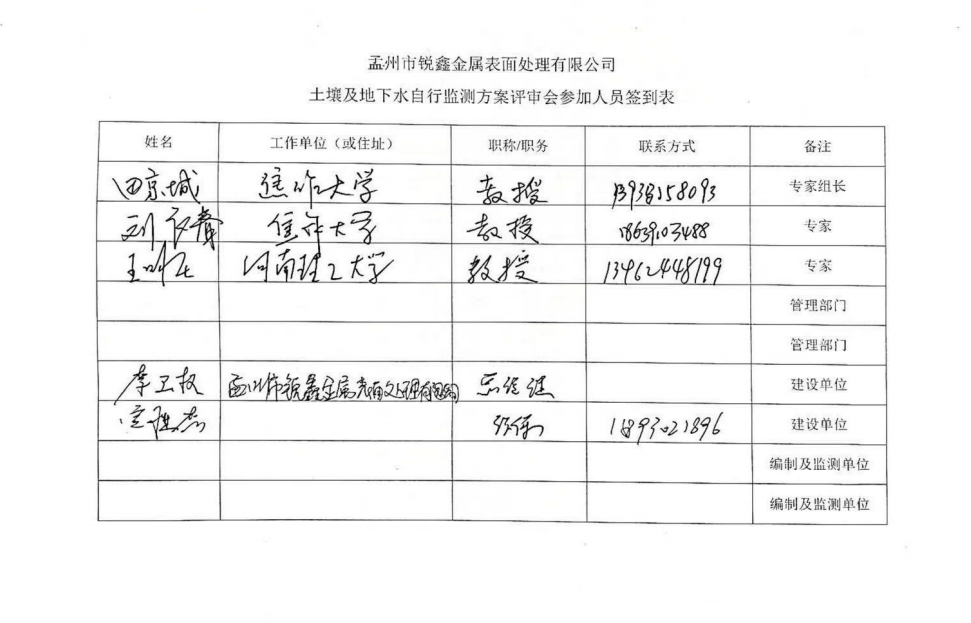 孟州市锐鑫金属表面处理有限公司
土壤及地下水自行监测方案评审会参加人员签到表
姓名 工作单位（或住址） 职称/职务 联系方式 备注
田京城 焦作大学 教授 13938158093 专家组长
焦作大学 教授 18639103488 专家
王明仕 河南理工大学 教授 13462448199 专家
管理部门
管理部门
李卫权 孟州市锐鑫金属表面处理有限公司 总经理 建设单位
建设单位
编制及监测单位
编制及监测单位